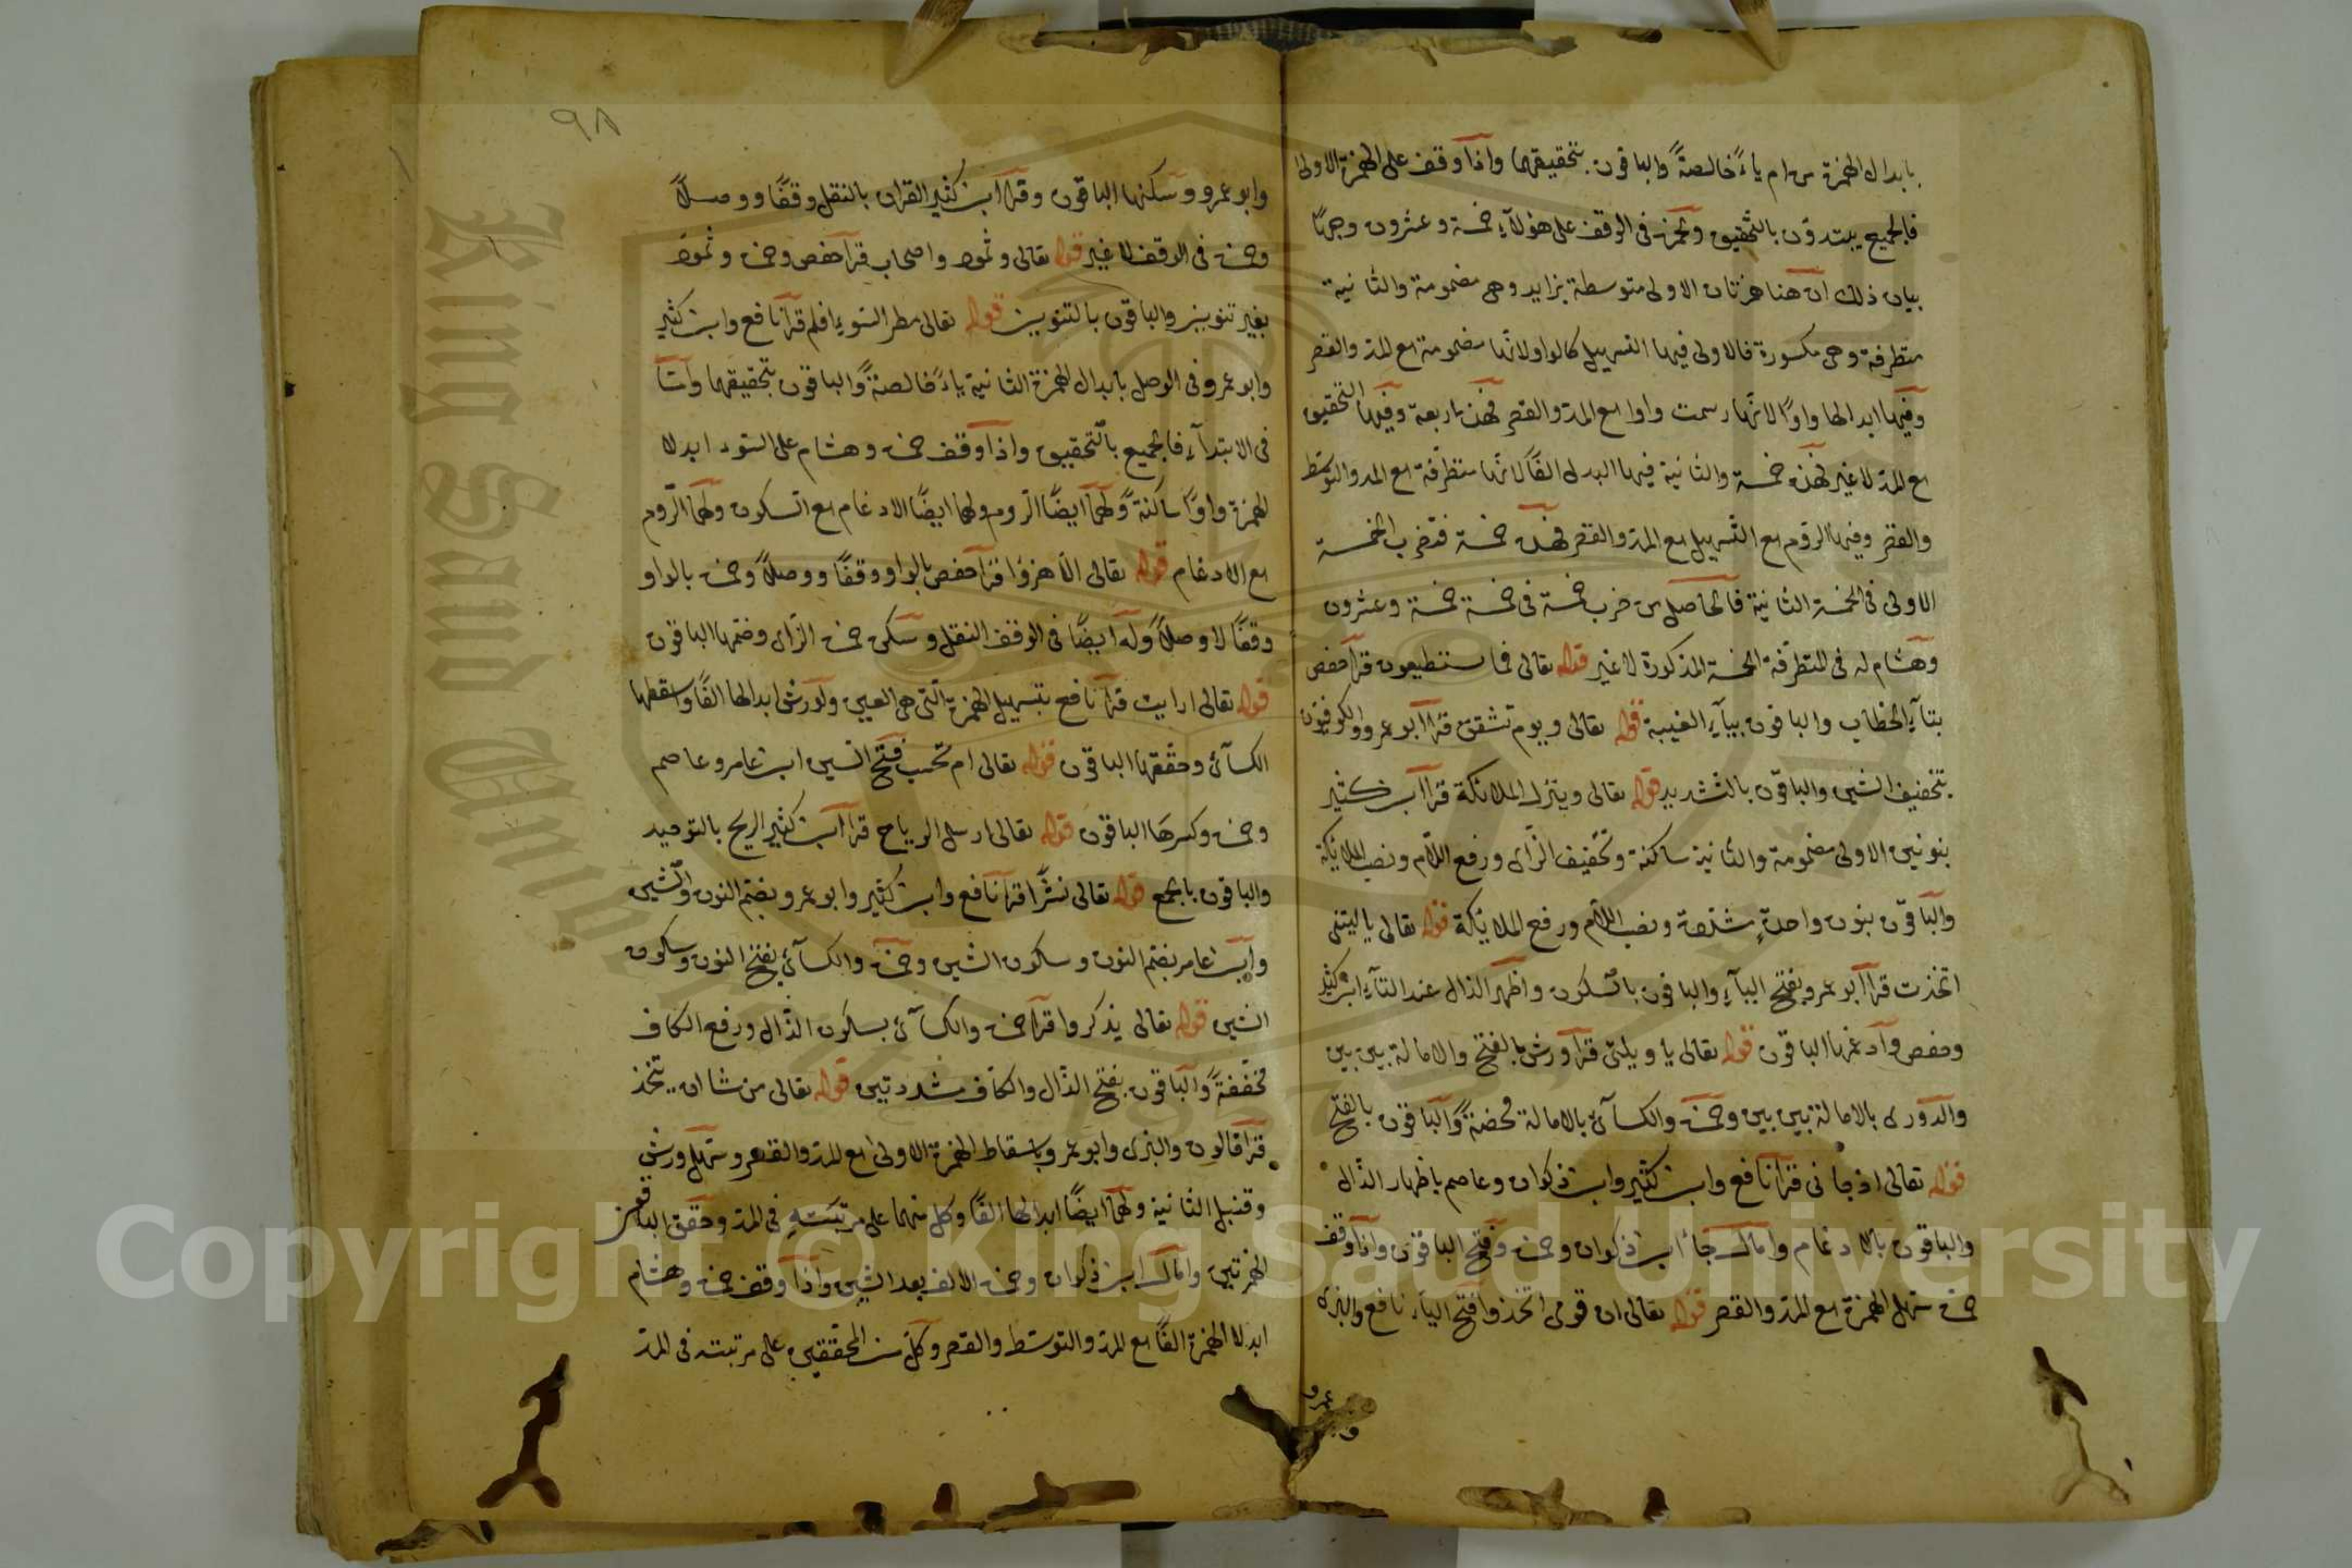 بابدال الهمزة من ام ياءً خالصةً والباقون بتحقيقهما واذا وقف على الهمزة الاولى
فالجميع يبتدؤن بالتحقيق ولحمزة فى الوقف على هؤلآء خمسة وعشرون وجهًا
بيان ذلك ان هنا همزتان الاولى متوسطة بزايد وهى مضمومة والثانية
متطرفة وهى مكسورة فالاولى فيها التسهيل كالواو لانها مضمومة مع المد والقصر
وفيها ابدالها واوًا لانها رسمت واوا مع المد والقصر فهذه اربعة وفيها التحقيق
مع المد لا غير فهذه خمسة والثانية فيها البدل الفًا لانها متطرّفة مع المد والتوسّط
والقصر وفيها الروم مع التسهيل مع المد والقصر فهذه خمسة فتضرب الخمسة
الاولى فى الخمسة الثانية فالحاصل من ضرب خمسة فى خمسة خمسة وعشرون
وهشام له فى المتطرّفة الخمسة المذكورة لا غير قوله تعالى فما تستطيعون قرا حفص
بتآء الخطاب والباقون بيآء الغيبة قوله تعالى ويوم تشقق قرا ابو عمرو والكوفيون
بتخفيف الشين والباقون بالتشديد قوله تعالى وينزل الملائكة قرا ابن كثير
بنونين الاولى مضمومة والثانية ساكنة وتخفيف الزّاى ورفع اللام ونصب الملائكة
والباقون بنون واحدةٍ مشددة ونصب اللام ورفع الملائكة قوله تعالى ياليتنى
اتخذت قرا ابو عمرو بفتح اليآء والباقون بالسكون واظهر الذال عند التآء ابن كثير
وحفص وادغمها الباقون قوله تعالى ياويلتى قرا ورش بالفتح والامالة بين بين
والدورى بالامالة بين بين وحمزة والكسآئى بالامالة محضةً والباقون بالفتح
قوله تعالى اذ جانى قرا نافع وابن كثير وابن ذكوان وعاصم باظهار الذال
والباقون بالادغام وامال جا ابن ذكوان وحمزة وفتح الباقون واذا وقف
حمزة سهل الهمزة مع المد والقصر قوله تعالى ان قومى اتخذوا فتح اليآء نافع والبزى
وابو عمرو
٩٨
وابو عمرو وسكنها الباقون وقرا ابن كثير القران بالنقل وقفًا ووصلاً
وحمزة فى الوقف لا غير قوله تعالى وثمود واصحاب قرا حفص وحمزة وثمود
بغير تنوين والباقون بالتنوين قوله تعالى مطر السوء افلم قرا نافع وابن كثير
وابو عمرو فى الوصل بابدال الهمزة الثانية ياءً خالصةً والباقون بتحقيقهما وامّا
فى الابتدآء فالجميع بالتحقيق واذا وقف حمزة وهشام على السوء ابدلا
الهمزة واوًا ساكنةً ولهما ايضًا الروم ولهما ايضًا الادغام مع السكون ولهما الرّوم
مع الادغام قوله تعالى الا هزوًا قرا حفص بالواو وقفًا ووصلاً وحمزة بالواو
وقفًا لا وصلاً وله ايضًا فى الوقف النقل وسكن حمزة الزّاى وضمها الباقون
قوله تعالى ارايت قرا نافع بتسهيل الهمزة التى هى العين ولورش ابدالها الفًا واسقطها
الكسآئى وحققها الباقون قوله تعالى ام تحسب فتح السين ابن عامر وعاصم
وحمزة وكسرها الباقون قوله تعالى ارسل الرياح قرا ابن كثير الريح بالتوحيد
والباقون بالجمع قوله تعالى نشرًا قرا نافع وابن كثير وابو عمرو بضم النون والشين
وابن عامر بضم النون وسكون الشين وحمزة والكسآئى بفتح النون وسكون
الشين قوله تعالى يذكروا قرا حمزة والكسآئى بسكون الذّال ورفع الكاف
مخففةً والباقون بفتح الذّال والكاف مشددتين قوله تعالى من شا ان يتخذ
قرا قالون والبزى وابو عمرو باسقاط الهمزة الاولى مع المد والقصر وسهل ورش
وقنبل الثانية ولهما ايضًا ابدالها الفًا وكل منهما على مرتبته فى المد وحقق الباقون
الهمزتين وامال ابن ذكوان وحمزة الالف بعد الشين واذا وقف حمزة وهشام
ابدلا الهمزة الفًا مع المد والتوسّط والقصر وكل من المحققين على مرتبته فى المد
King Saud University
Copyright © King Saud University